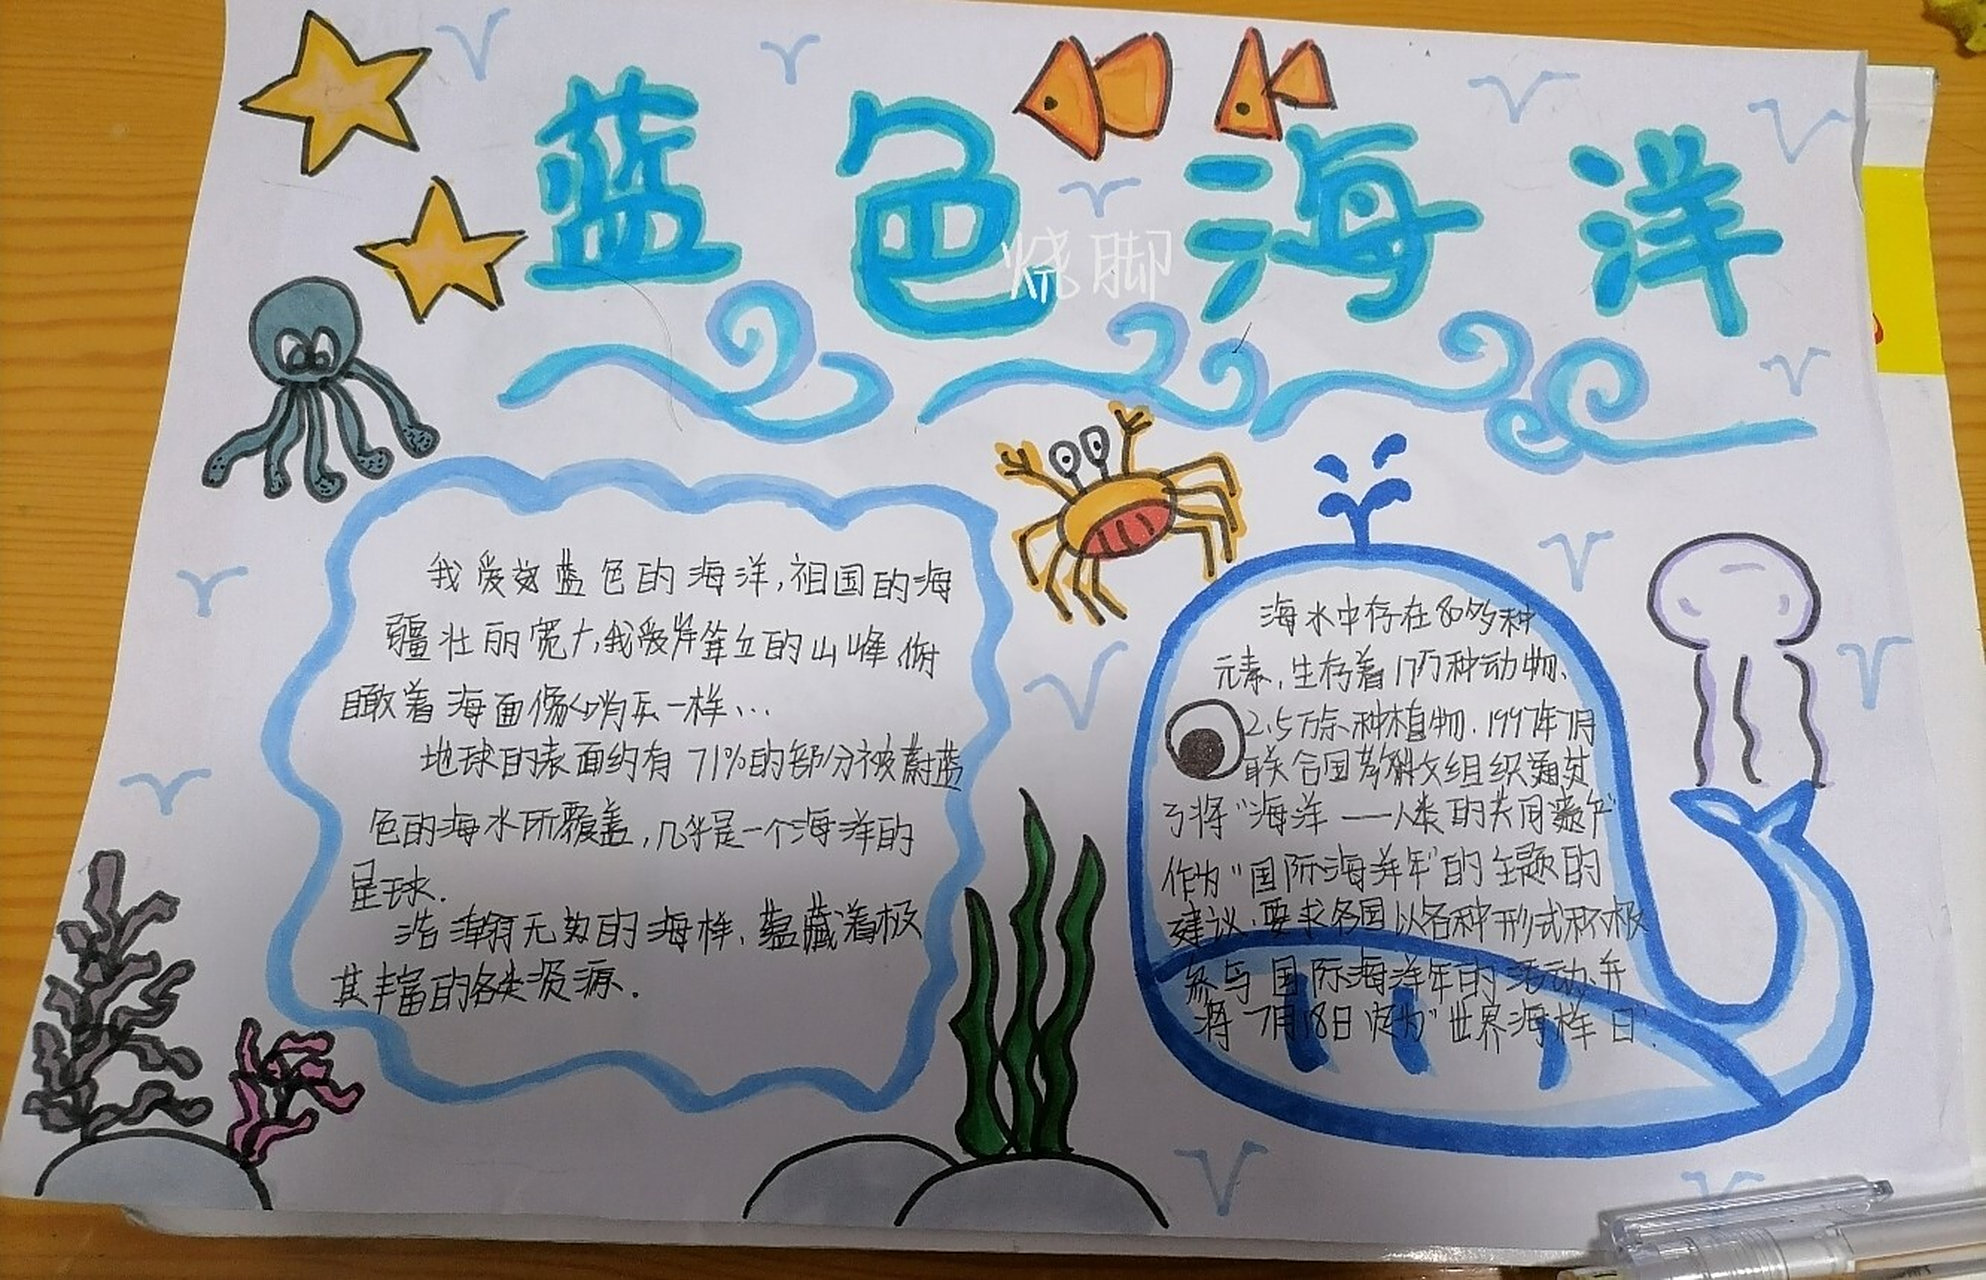 蓝色海洋
烧脚
我爱这蓝色的海洋,祖国的海
疆壮丽宽广,我爱岸耸立的山峰俯
瞰着海面像哨兵一样...
地球的表面约有71%的部分被蔚蓝
色的海水所覆盖,几乎是一个海洋的
星球.
浩瀚无边的海样、蕴藏着极
其丰富的各类资源.
海水中存在80多种
元素,生存着17万种动物、
2.5万余种植物.1997年7月
联合国教科文组织通过
了将"海洋——人类的共同遗产"
作为"国际海洋年"的主题的
建议,要求各国以各种形式积极
参与国际海洋年的活动,并
将7月18日定为"世界海样日".